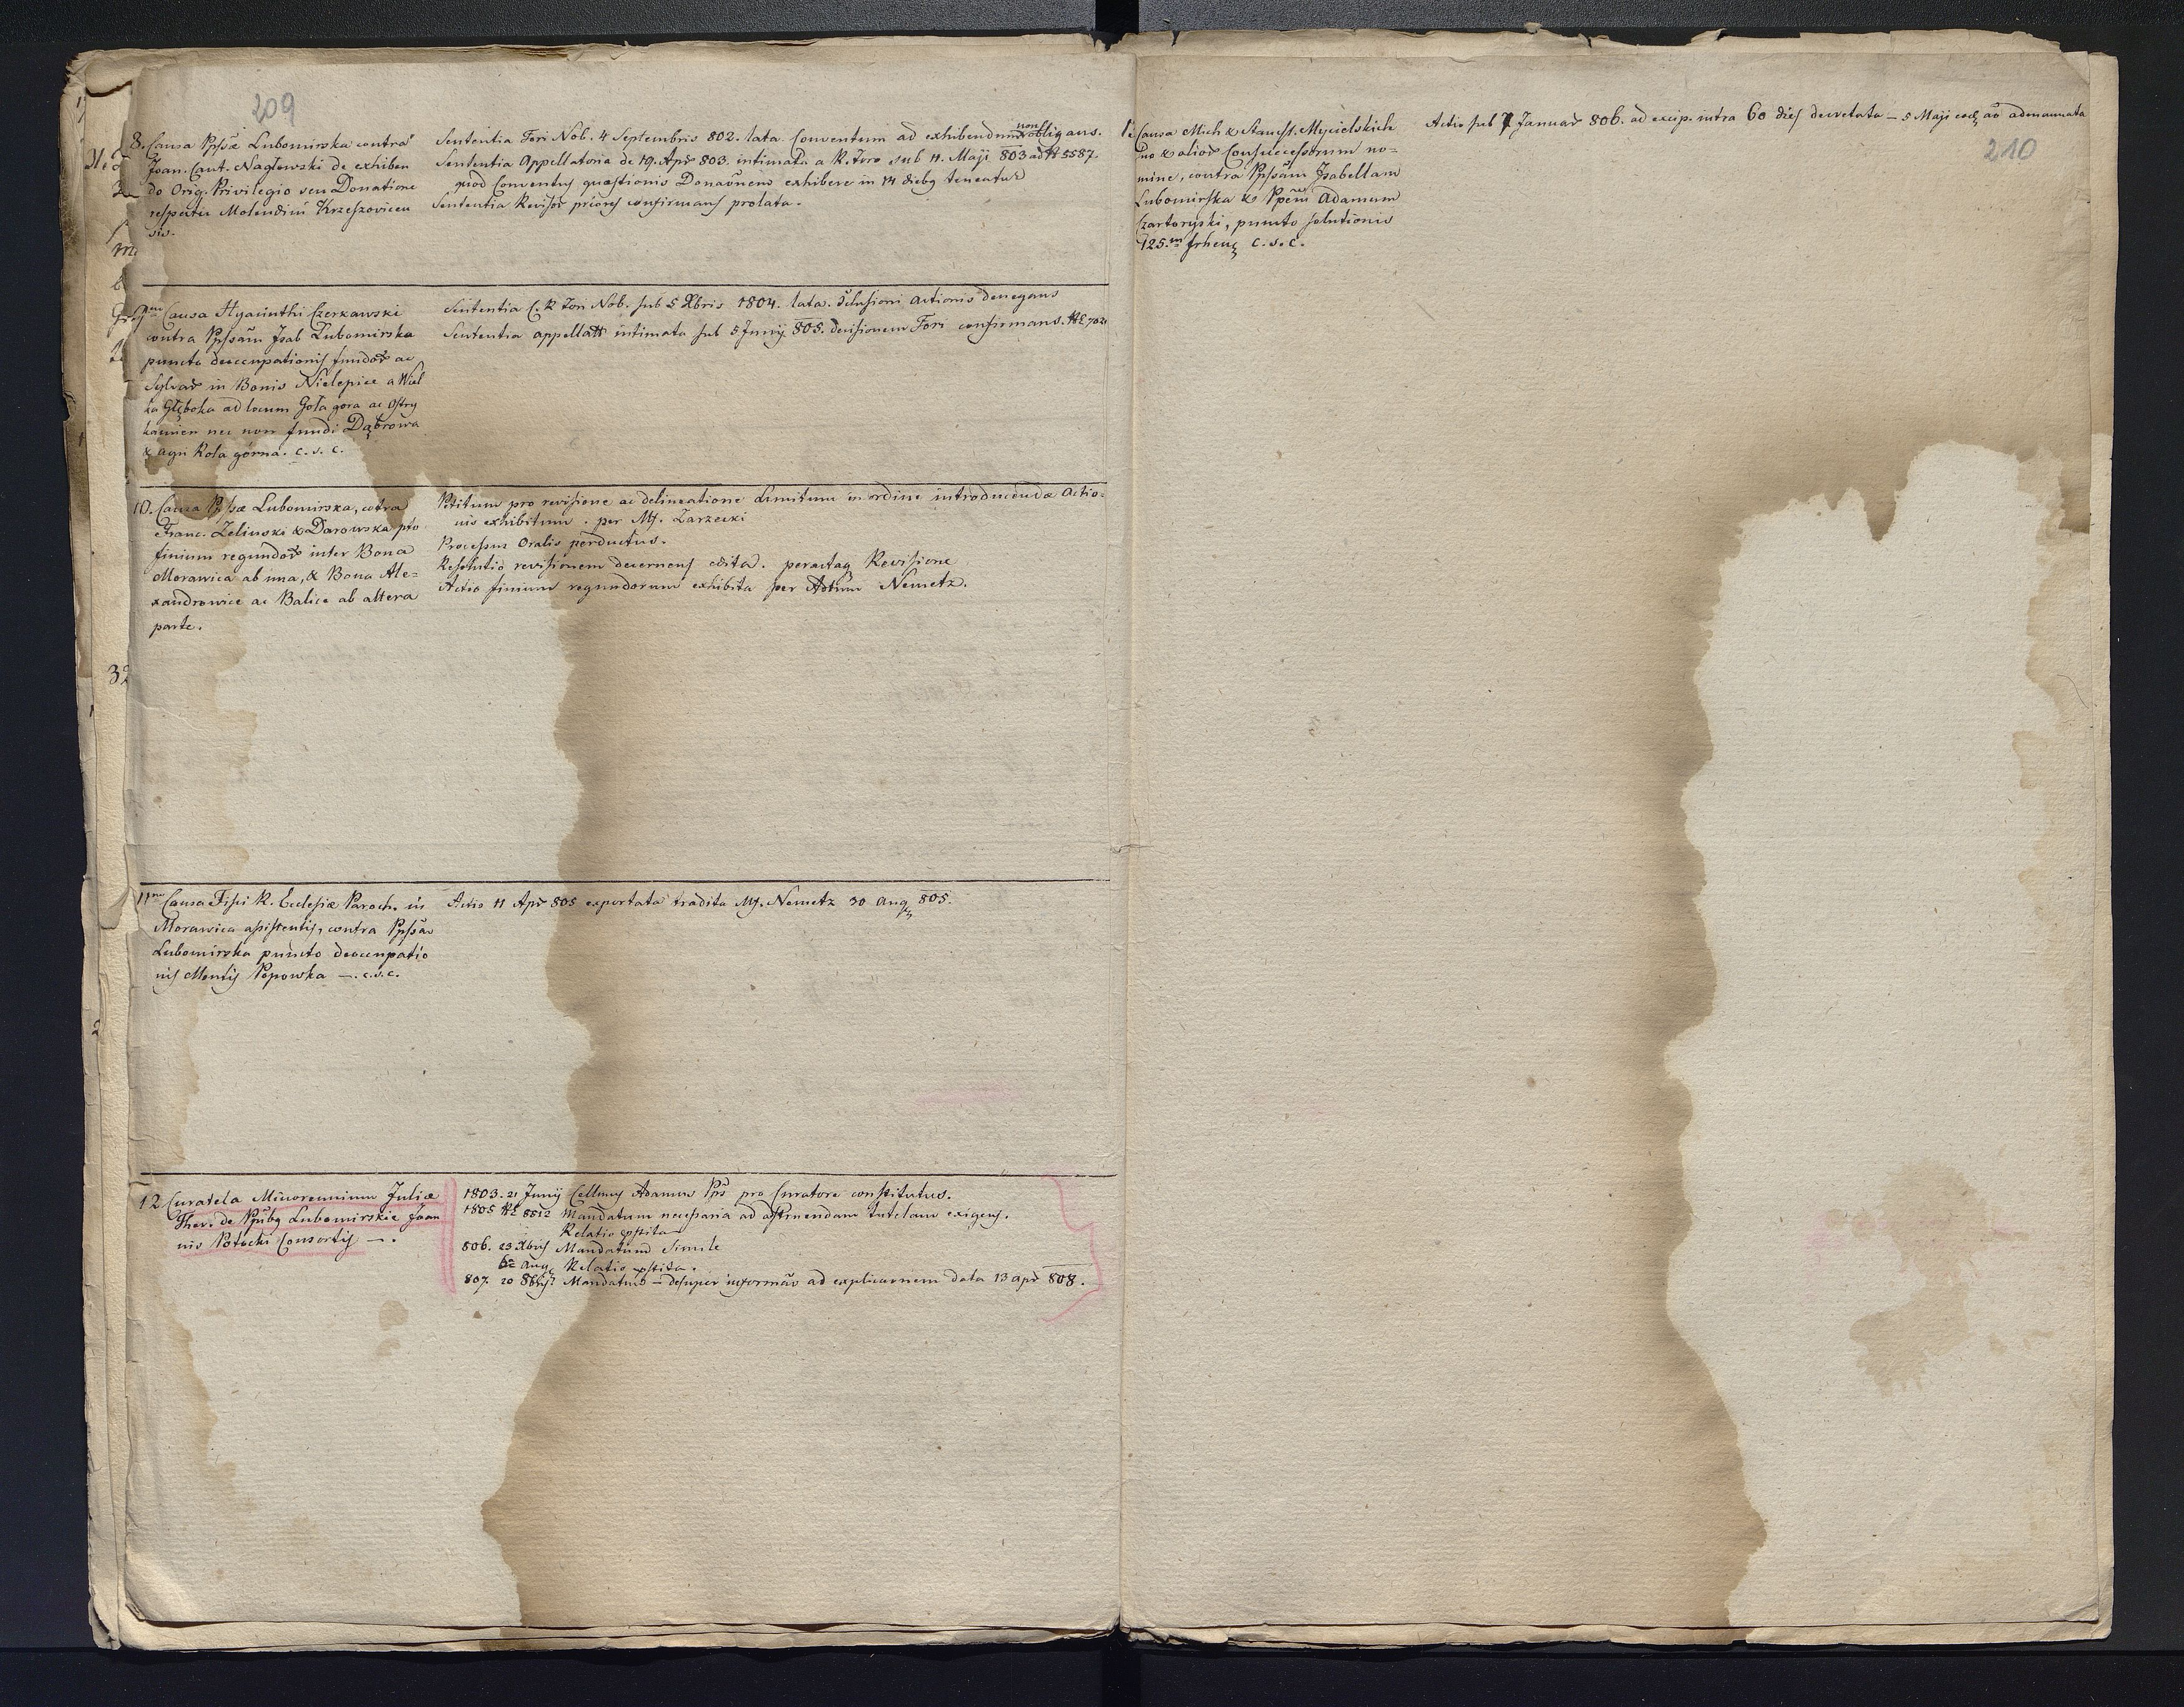 209
8. Causa Ppssæ Lubomirska contra
Joan. Cant. Nagłowski de exhiben
do Orig. Privilegio seu Donatione
respectu Molendini Krzeszovicen
sis.
Sententia Fori Nob. 4 Septembris 802. lata Conventum ad exhibendum non obligans.
Sententia Appellatoria de 19. Apr 803. intimata a R. Foro sub 11. Maji 803 ad N 5587.
quod Conventus quæstionis Donaõnem exhibere in 14 diebq teneatur
Sententia Revisor priores confirmans prolata.
9no Causa Hyacinthi Czerkawski
contra Ppssam Jsab Lubomirska
puncto deoccupationis fundor ac
Sylvar in Bonis Nielepice a Wiel
ka Głęboka ad locum Goła gora ac Ostry
kamien nec non fundi Dąbrowa
& agri Rola górna. c. s. c.
Sententia C. R Fori Nob. sub 5 Xbris 1804. lata. actionis denegans
Sententia appellatt intimata sub 5 Junij 805. decisionem Fori confirmans.
10. Causa Ppssæ Lubomirska, cotra
Franc. Zelinski & Darowska pto
finium regundor inter Bona
Morawica ab una, & Bona Ale=
xandrowice ac Balice ab altera
parte.
Petitum pro revisione ac delineatione Limitum in ordine introducendæ Actio=
nis exhibitum. per Mf. Zarzecki
Processus Oralis perductus.
Resolutio revisionem decernens edita. peractaq Revisione
Actio finium regundorum exhibita per Nemetz.
11mo Causa Fisci R. Ecclesiæ Paroch. in
Morawica assistentis, contra Ppssã
Lubomirska puncto deoccupatio
nis Montis Popowka —. c.s.c.
Actio 11 Apr 805 exportata tradita Mf. Nemetz 30 Aug 805.
12 Curatela Minorennium Juliæ
Ther. de Ppibq Lubomirskie Joan
nis Potocki Consortis —.
1803. 21 Junij Cellmus Adamus Pps pro Curatore constitutus.
1805 N 8512 Mandatum necessaria ad tutelam exigens.
Relatio
806. 23 Xbris Mandatum Simile
Aug Relatio
807. 20 8bris Mandatum — desuper ad data 13 apr 808.
210
Causa Mich & Stanisl. Mycielskich
suo & alior Consuccessorum no=
mine, contra Ppssam Jsabellam
Lubomirska & Adamum
Czartoryski, puncto solutionis
125.m c. s. c.
Actio sub 7 Januar 806. ad excip. intra 60 dies decretata — 5 Maji eod ao admanuata